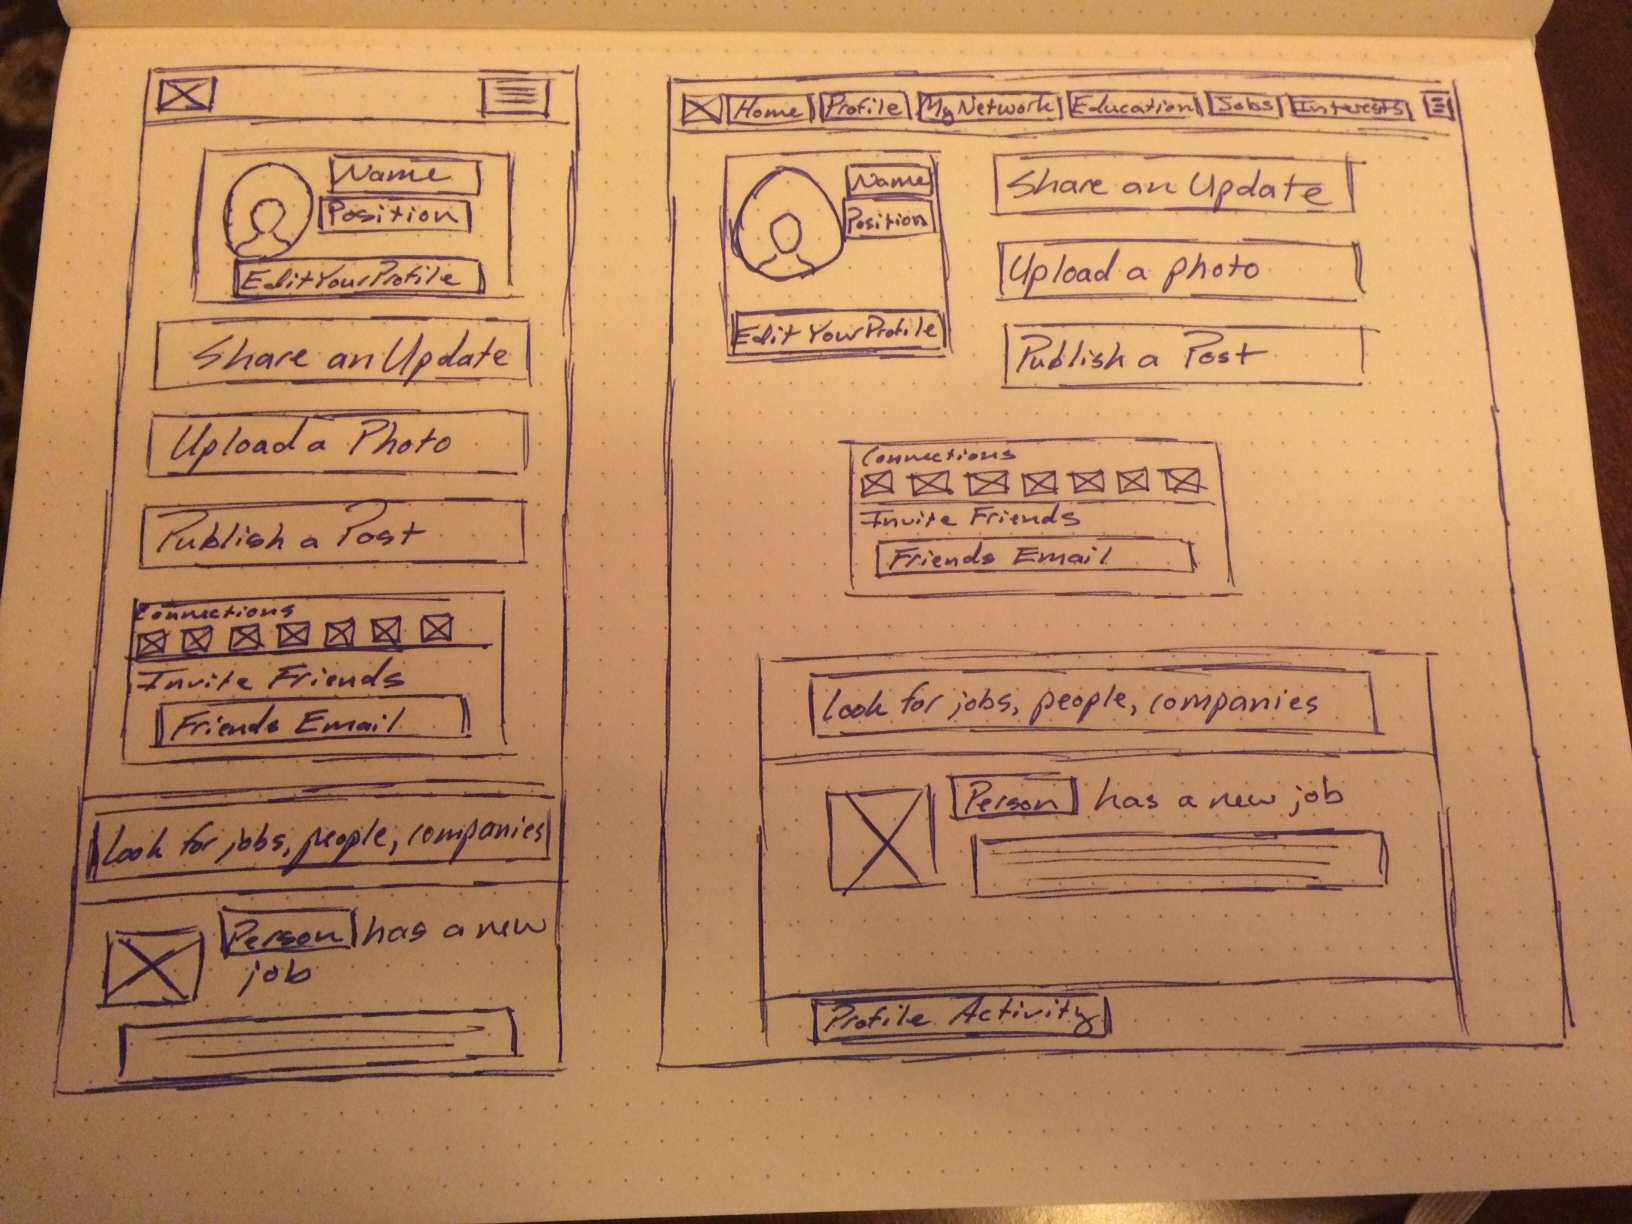 Name
Position
Edit Your Profile
Share an Update
Upload a Photo
Publish a Post
Connections
Invite Friends
Friends Email
Look for jobs, people, companies
Person has a new
job
Home Profile My Network Education Jobs Interests
Name
Position
Edit Your Profile
Share an Update
Upload a photo
Publish a Post
Connections
Invite Friends
Friends Email
Look for jobs, people, companies
Person has a new job
Profile Activity